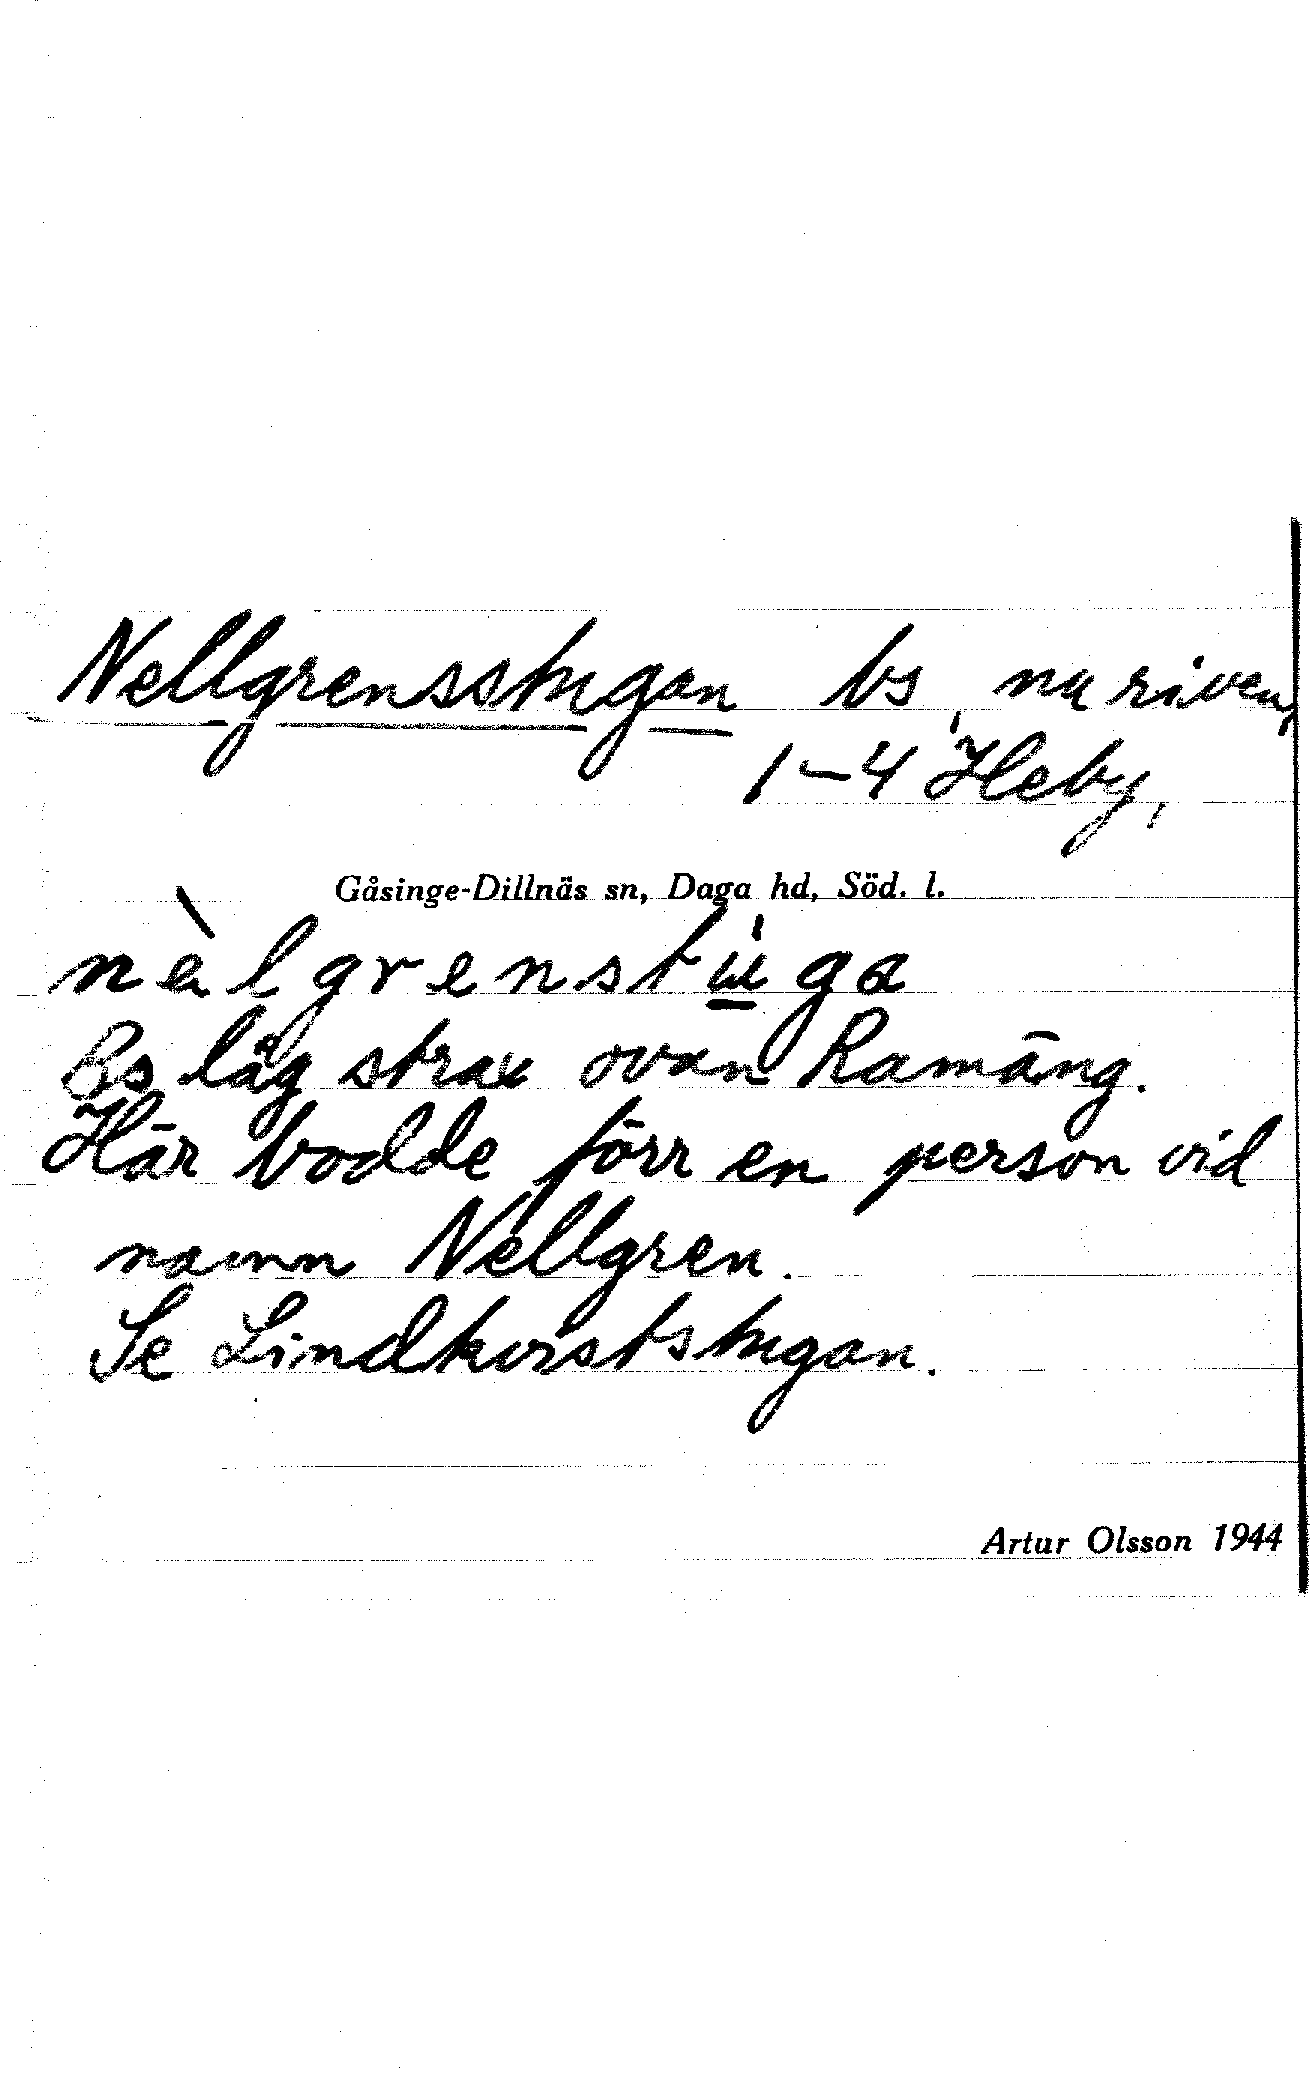 Nellgrensstugan bs, nu riven,
1–4 Heby,
Gåsinge-Dillnäs sn, Daga hd, Söd. l.
nèlgrenstu̇ga
Bs låg strax ovan Ramäng.
Här bodde förr en person vid
namn Nellgren.
Se Lindkviststugan.
Artur Olsson 1944